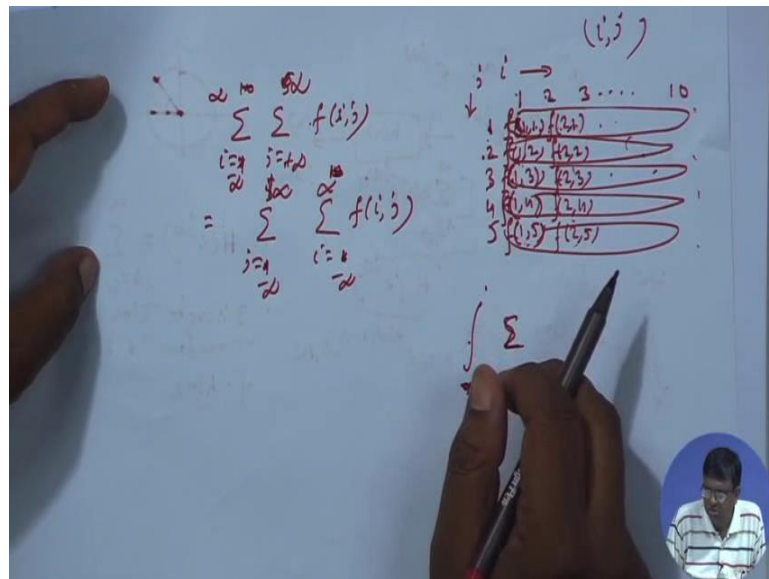 (i,j)
∞ 10 5 ∞
∑ ∑ f(i,j)
i=1 j=1 -∞
-∞
= ∑ ∑ f(i,j)
j=1 i=1
-∞ -∞
j i →
↓ 1 2 3 .... 10
1 f(1,1) f(2,1) . .
2 f(1,2) f(2,2)
3 f(1,3) f(2,3)
4 f(1,4) f(2,4)
5 f(1,5) f(2,5)
∫ ∑